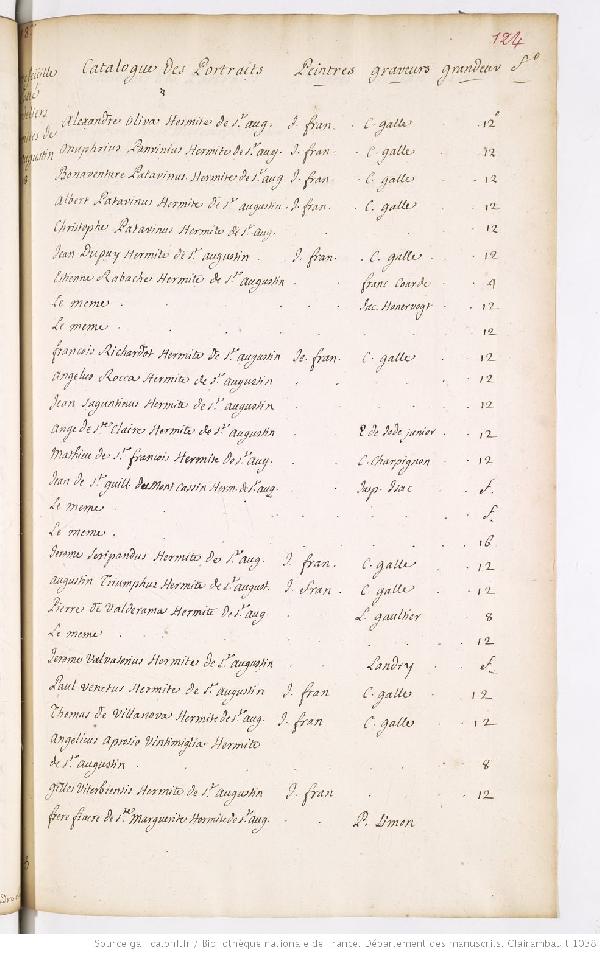 124
Catalogue des Portraits Peintres graveurs grandeur f.o
Alexandre Oliva Hermite de St. aug. J. fran. C. galle 12°
Onuphrius Panvinius Hermite de St. aug. J. fran. C. galle 12
Bonaventure Patavinus Hermite de St. aug J. fran. C. galle 12
Albert Patavinus Hermite de St. augustin. J. fran. C. galle 12
Christophe Patavinus Hermite de St. aug. 12
Jean Dupuy Hermite de St. augustin J. fran. C. galle 12
Etienne Rabache Hermite de St. augustin franc. Coarde 4
Le meme Jac. Honervogt 12
Le meme 12
francois Richardot Hermite de St. augustin Je. fran. C. galle 12
Angelus Rocca Hermite de St. augustin 12
Jean Saguntinus Hermite de St. augustin 12
Ange de Ste Claire Hermite de St. augustin P. de Jode junior 12
Mathieu de St. francois Hermite de St. aug. C. Charpignon 12
Jean de St. guill. du Mont Cassin Herm. de St. aug. Jasp. Isac f.
Le meme f.
Le meme 16
Jerome Seripandus Hermite de St. aug. J. fran. C. galle 12
Augustin Triumphus Hermite de St. august. J. fran. C. galle 12
Pierre de Valderama Hermite de St. aug L. gaultier 8
Le meme 12
Jerome Valvasorius Hermite de St. augustin Landry f.
Paul Venetus Hermite de St. augustin J. fran C. galle 12
Thomas de Villanova Hermite de St. aug. J. fran C. galle 12
Angelicus Aprosio Vintimiglia Hermite
de St. augustin 8
gilles Viterbiensis Hermite de St. augustin J. fran 12
frere fiacre de Ste Marguerite Hermite de St. aug. P. Simon
Source gallica.bnf.fr / Bibliothèque nationale de France. Département des manuscrits. Clairambault 1038